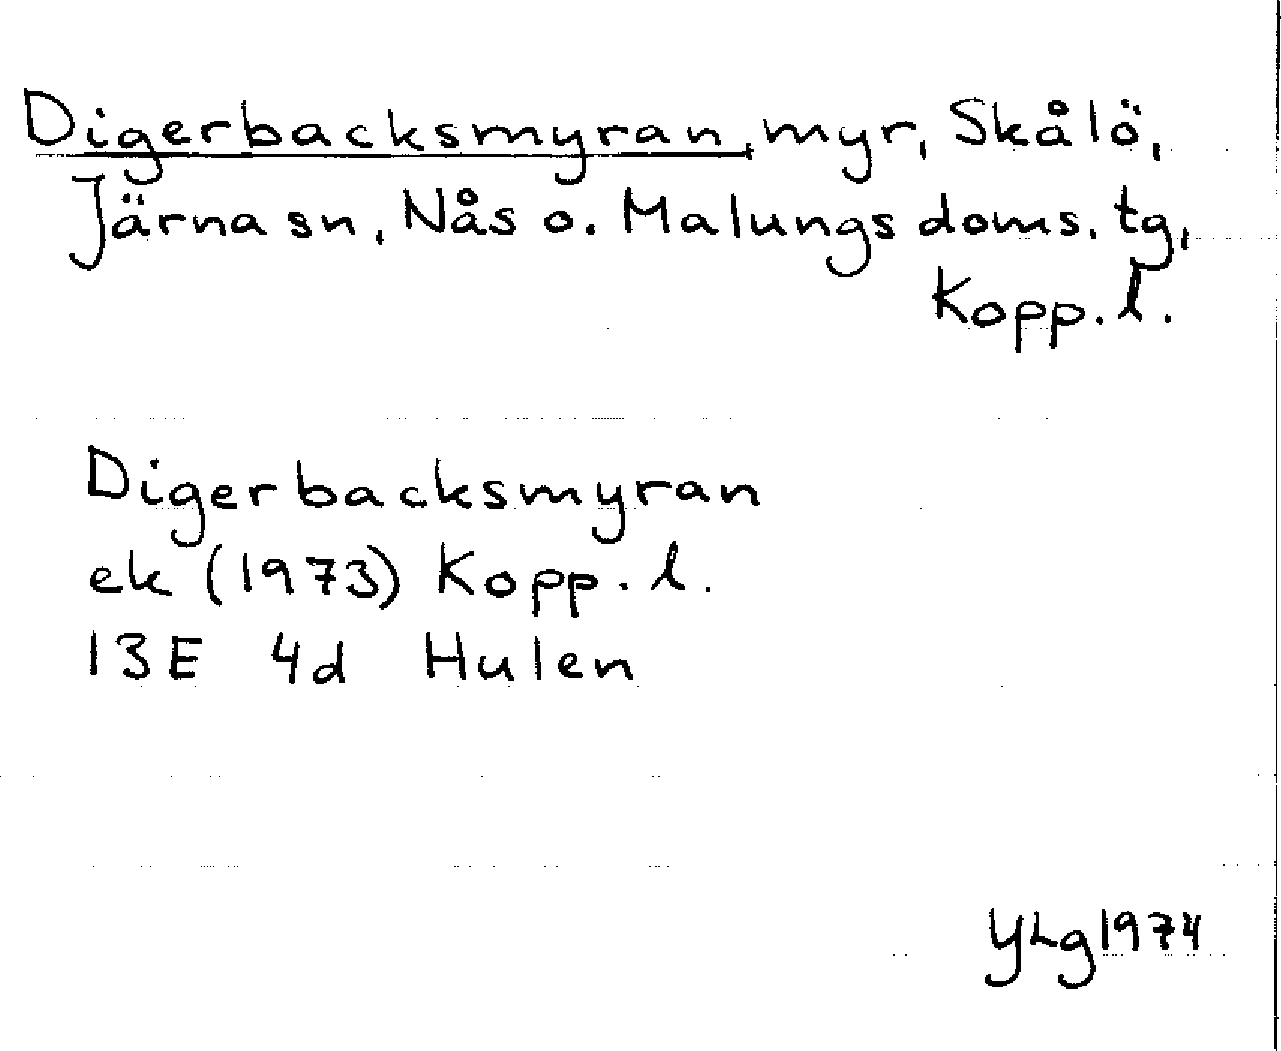 Digerbacksmyran, myr, Skålö,
Järna sn, Nås o. Malungs doms. tg,
Kopp. l.
Digerbacksmyran
ek (1973) Kopp. l.
13E 4d Hulen
YLg 1974